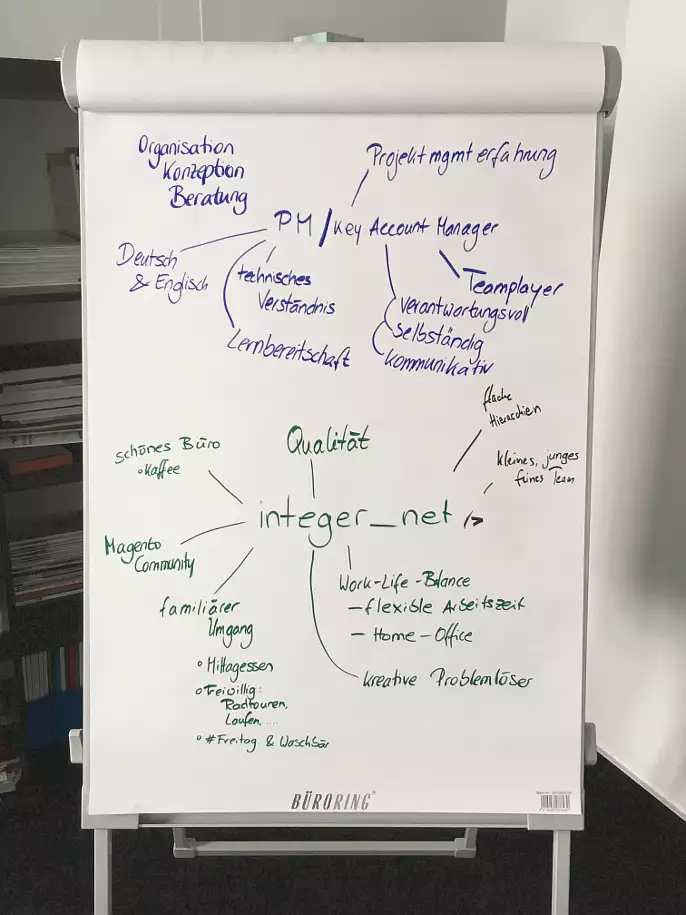 Organisation
Konzeption
Beratung
Projektmgmterfahrung
PM/Key Account Manager
Deutsch
& Englisch
technisches
Verständnis
Lernbereitschaft
Teamplayer
verantwortungsvoll
selbständig
kommunikativ
flache
Hierarchien
kleines, junges
feines Team
schönes Büro
Kaffee
Qualität
integer_net />
Magento
Community
familiärer
Umgang
Mittagessen
Freiwillig:
Radtouren,
Laufen, ....
#Freitag & Waschbär
Work-Life-Balance
- flexible Arbeitszeit
- Home-Office
kreative Problemlöser
BÜRORING